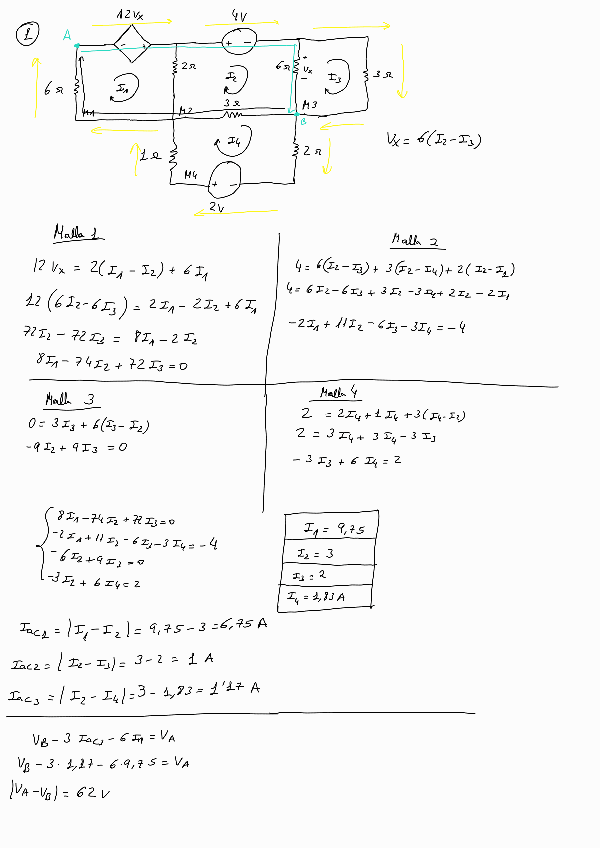 1
12Vx
4V
A
6Ω
I1
2Ω
I2
6Ω
+
Vx
-
I3
3Ω
M1
M2
3Ω
M3
B
I4
1Ω
2Ω
M4
2V
Vx = 6(I2-I3)
Malla 1
12Vx = 2(I1-I2)+6I1
12(6I2-6I3) = 2I1-2I2+6I1
72I2-72I3 = 8I1-2I2
8I1-74I2+72I3=0
Malla 2
4=6(I2-I3)+3(I2-I4)+2(I2-I1)
4=6I2-6I3+3I2-3I4+2I2-2I1
-2I1+11I2-6I3-3I4=-4
Malla 3
0=3I3+6(I3-I2)
-9I2+9I3=0
Malla 4
2=2I4+1I4+3(I4-I2)
2=3I4+3I4-3I3
-3I3+6I4=2
8I1-74I2+72I3=0
-2I1+11I2-6I3-3I4=-4
-6I2+9I3=0
-3I2+6I4=2
I1=9,75
I2=3
I3=2
I4=1,83A
Iac1=|I1-I2|=9,75-3=6,75A
Iac2=|I2-I3|=3-2=1A
Iac3=|I2-I4|=3-1,83=1'17A
VB-3Iac3-6I1=VA
VB-3·1,17-6·9,75=VA
|VA-VB|=62V